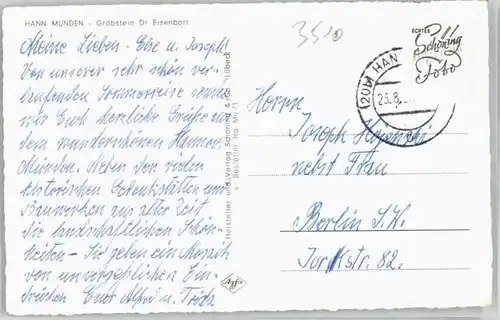 HANN. MÜNDEN - Grabstein Dr Eisenbart
3510
ECHTES
Schöning
Foto
(20b) HAN
25.8.
Meine Lieben - Else u. Joseph!
Von unserer sehr schön ver-
laufenden Sommerreise senden
wir Euch herzliche Grüße aus
dem wunderschönen Hannov.
Münden. Neben den vielen
historischen Gedenkstätten und
Bauwerken aus alter Zeit
die landschaftlichen Schön-
heiten - Sie geben ein Mosaik
von unvergeßlichen Ein-
drücken Euch Alfred u.
Hersteller und Verlag Schöning & Co., Lübeck
+ Bestellnr. Ha. Mü
Agfa
Herrn
Joseph
nebst Frau
Berlin S.W.
Yorkstr. 82.